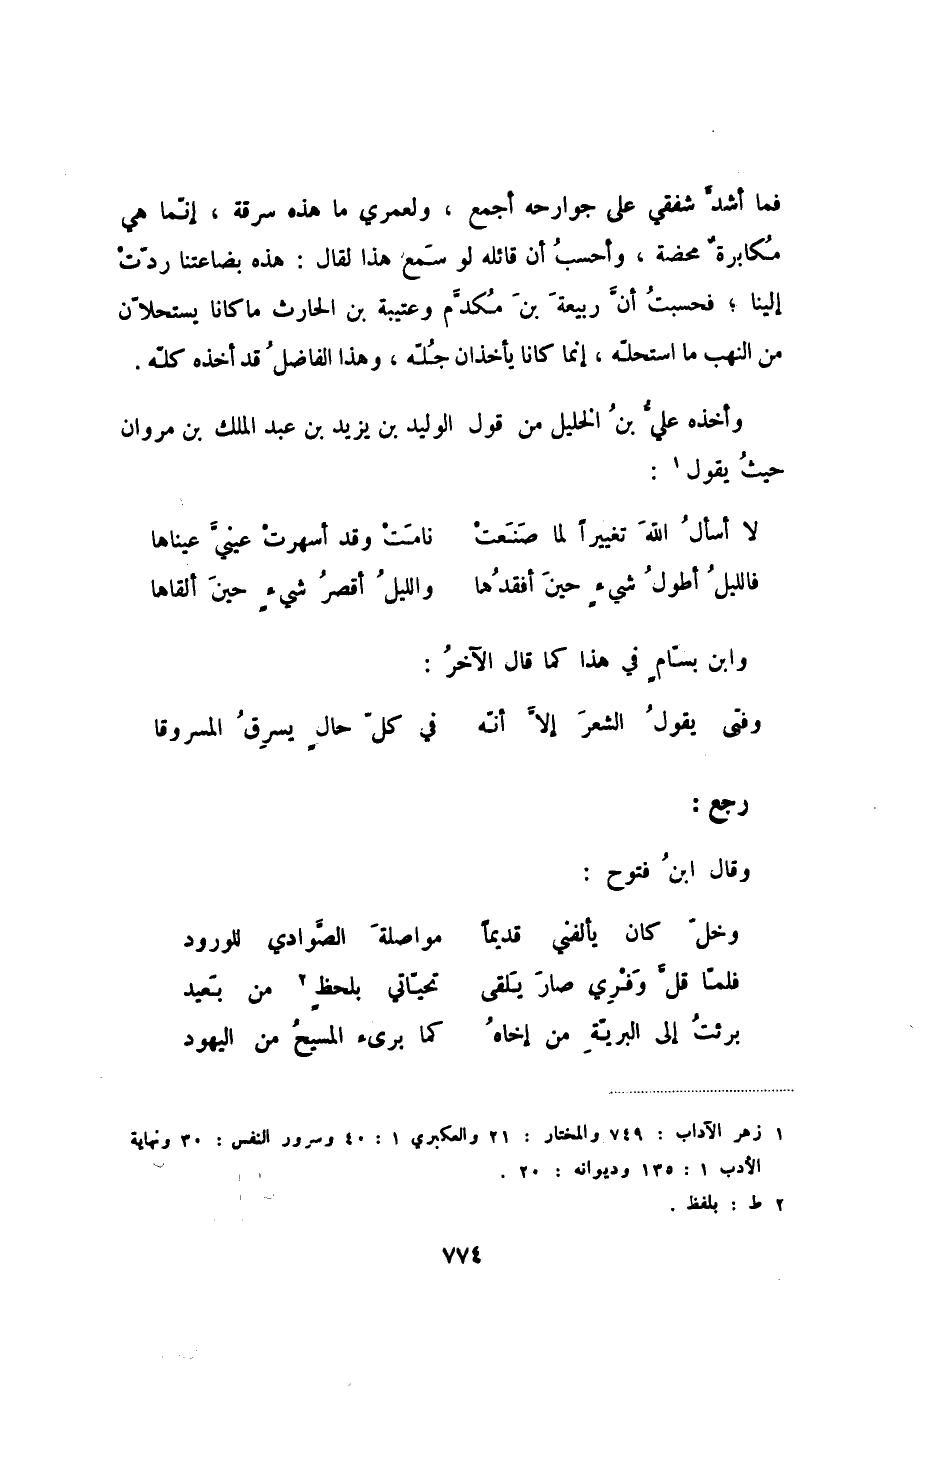 فما أشدَّ شفقي على جوارحه أجمع ، ولعمري ما هذه سرقة ، إنّما هي
مُكابرةٌ محضة ، وأحسبُ أن قائله لو سَمع هذا لقال : هذه بضاعتنا ردّتْ
إلينا ؛ فحسبتُ أنَّ ربيعةَ بنَ مُكدَّم وعتيبة بن الحارث ماكانا يستحلاّن
من النهب ما استحلّه ، إنما كانا يأخذان جُلّه ، وهذا الفاضلُ قد أخذه كلّه .
وأخذه عليُّ بنُ الخليل من قول الوليد بن يزيد بن عبد الملك بن مروان
حيثُ يقول ١ :
لا أسألُ اللهَ تغييراً لما صَنَعتْ نامَتْ وقد أسهرتْ عينيَّ عيناها
فالليلُ أطولُ شيءٍ حينَ أفقدُها والليلُ أقصرُ شيءٍ حينَ ألقاها
وابن بسّامٍ في هذا كما قال الآخرُ :
وفتى يقولُ الشعرَ إلاَّ أنّه في كلّ حالٍ يسرِقُ المسروقا
رجع :
وقال ابنُ فتوح :
وخلّ كان يألفني قديماً مواصلةَ الصَّوادي للورود
فلمّا قلَّ وَفْرِي صارَ يَلقى تحيّاتي بلحظٍ ٢ من بَعيد
برئتُ إلى البريّةِ من إخاهُ كما برىء المسيحُ من اليهود
١ زهر الآداب : ٧٤٩ والمختار : ٢١ والعكبري ١ : ٤٠ وسرور النفس : ٣٠ ونهاية
الأدب ١ : ١٣٥ وديوانه : ٢٠ .
٢ ط : بلفظ .
٧٧٤